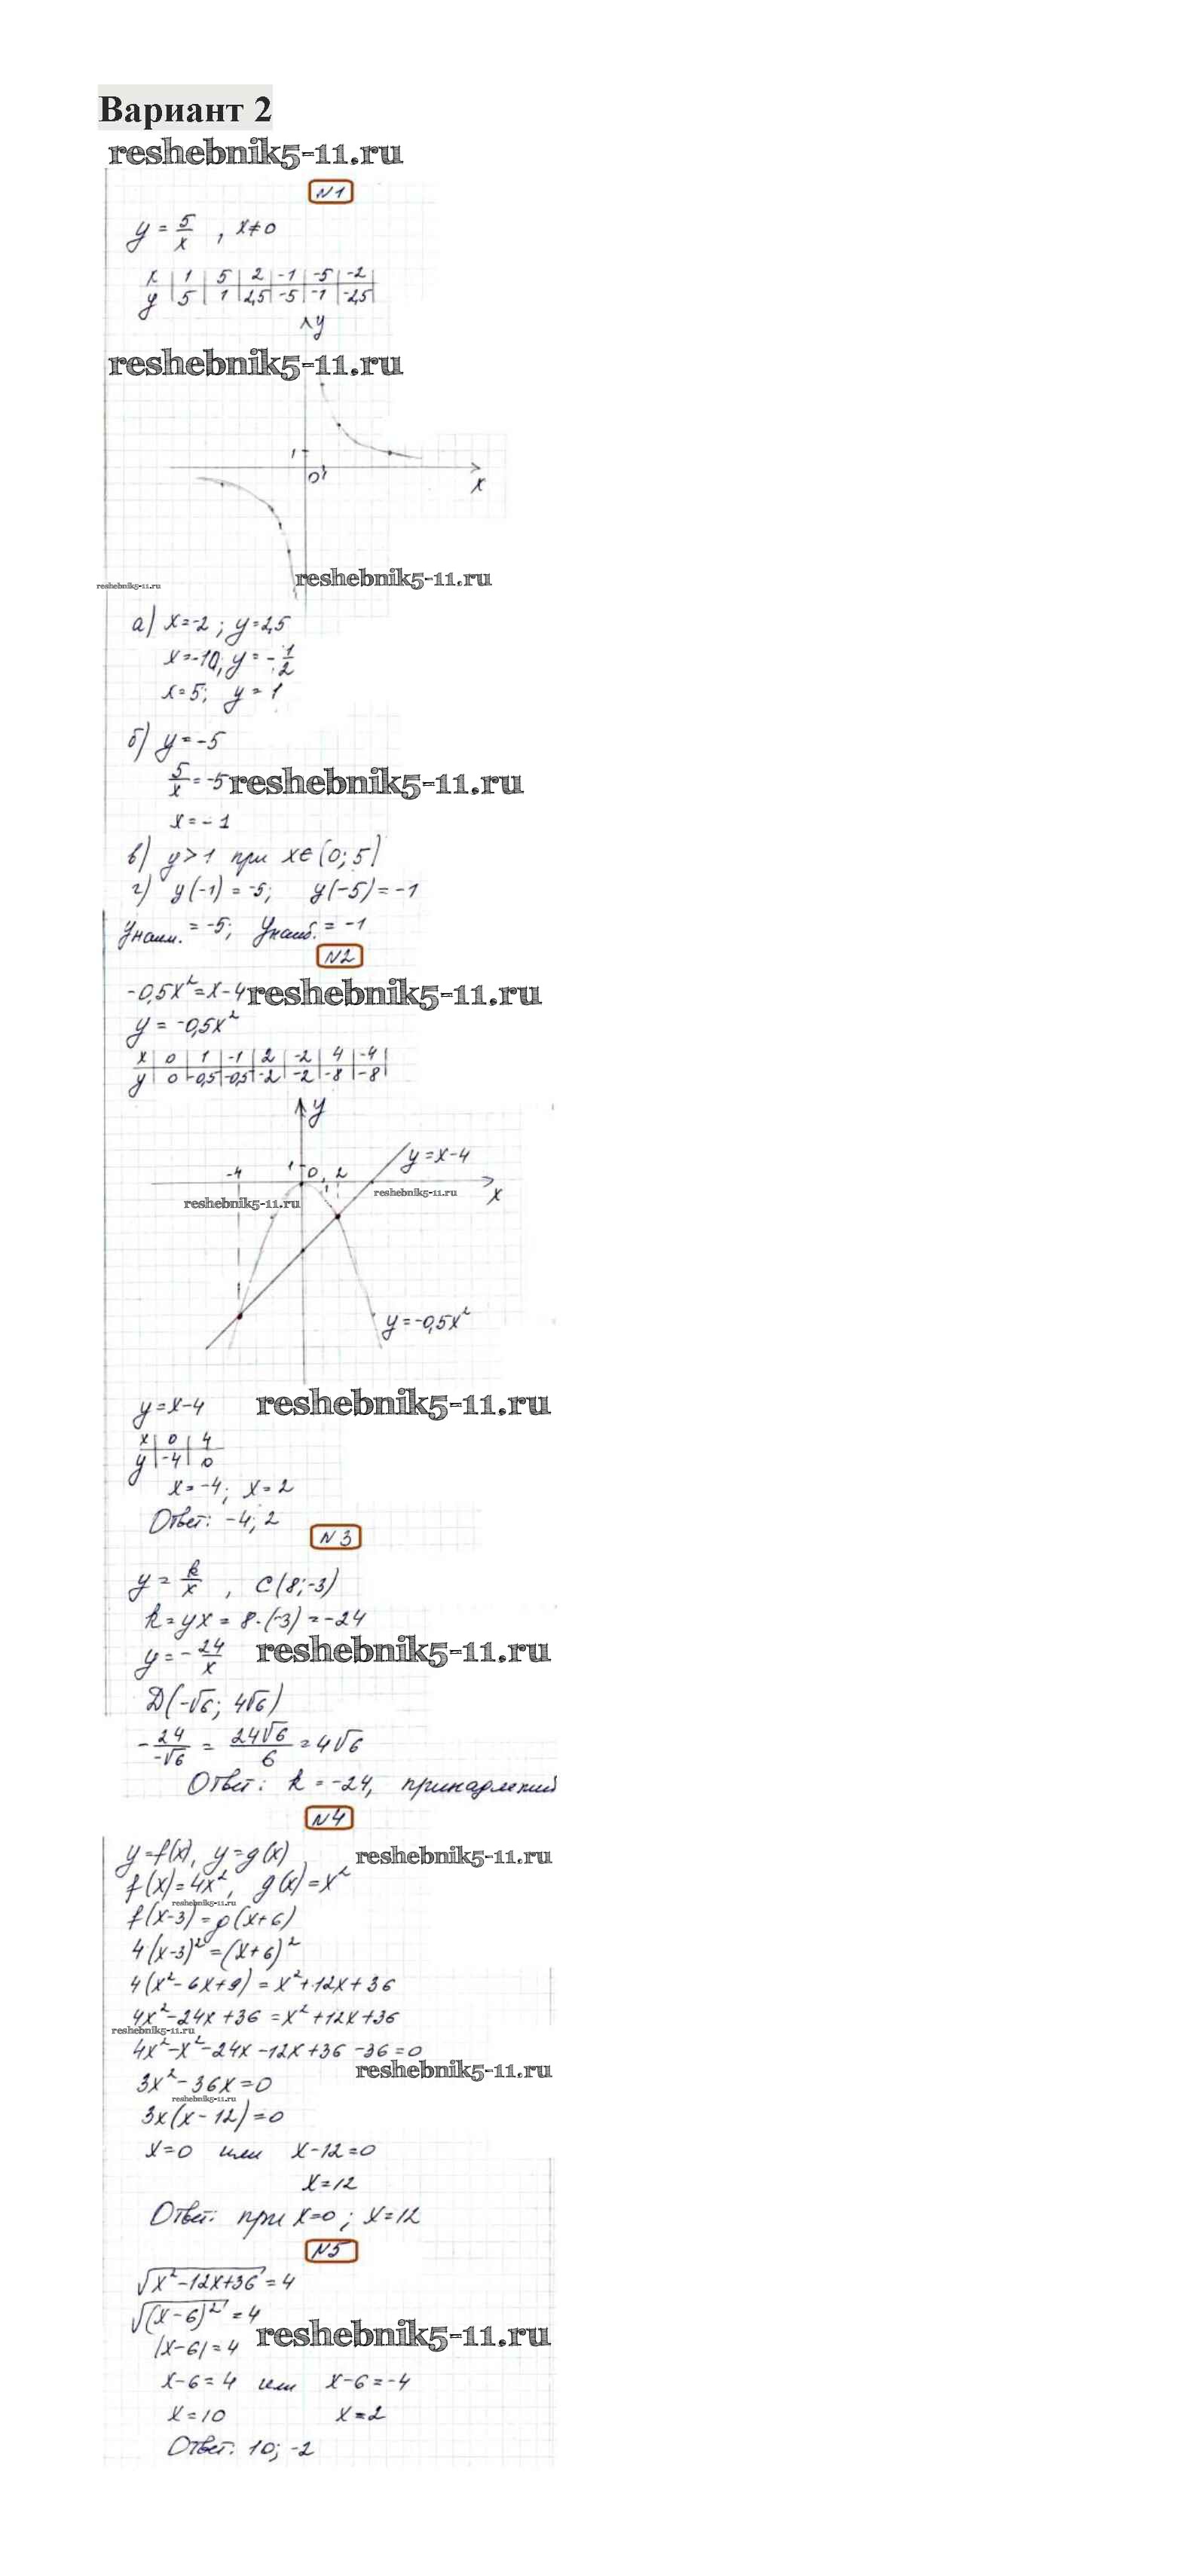 Вариант 2
reshebnik5-11.ru
N1
y = 5/x , x≠0
x | 1 | 5 | 2 | -1 | -5 | -2
y | 5 | 1 | 2,5 | -5 | -1 | -2,5
y
reshebnik5-11.ru
1
0 1
x
reshebnik5-11.ru
reshebnik5-11.ru
а) x=-2 ; y=2,5
x=-10; y = -1/2
x=5; y = 1
б) y = -5
5/x = -5 reshebnik5-11.ru
x = -1
в) y > 1 при x∈(0; 5)
г) y(-1) = -5; y(-5) = -1
yнаим. = -5; yнаиб. = -1
N2
-0,5x² = x-4 reshebnik5-11.ru
y = -0,5x²
x | 0 | 1 | -1 | 2 | -2 | 4 | -4
y | 0 | -0,5 | -0,5 | -2 | -2 | -8 | -8
y
y = x-4
-4 1 0 1 2
x
reshebnik5-11.ru reshebnik5-11.ru
y = -0,5x²
y = x-4 reshebnik5-11.ru
x | 0 | 4
y | -4 | 0
x = -4; x = 2
Ответ: -4; 2
N3
y = k/x , C(8; -3)
k = yx = 8·(-3) = -24
y = -24/x reshebnik5-11.ru
D(-√6; 4√6)
-24/-√6 = 24√6/6 = 4√6
Ответ: k = -24, принадлежит
N4
y=f(x), y=g(x) reshebnik5-11.ru
f(x) = 4x², g(x) = x²
reshebnik5-11.ru
f(x-3) = g(x+6)
4(x-3)² = (x+6)²
4(x²-6x+9) = x²+12x+36
4x²-24x+36 = x²+12x+36
reshebnik5-11.ru
4x²-x²-24x-12x+36-36=0
reshebnik5-11.ru
3x²-36x=0
reshebnik5-11.ru
3x(x-12)=0
x=0 или x-12=0
x=12
Ответ: при x=0; x=12
N5
√x²-12x+36 = 4
√(x-6)² = 4
reshebnik5-11.ru
|x-6| = 4
x-6 = 4 или x-6 = -4
x = 10 x = 2
Ответ: 10; -2